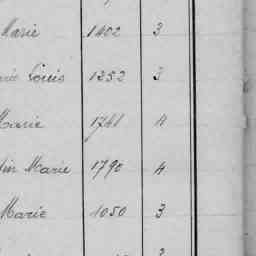 Marie 1402 3
Louis 1252 3
Marie 1741 4
Marie 1790 4
Marie 1050 3